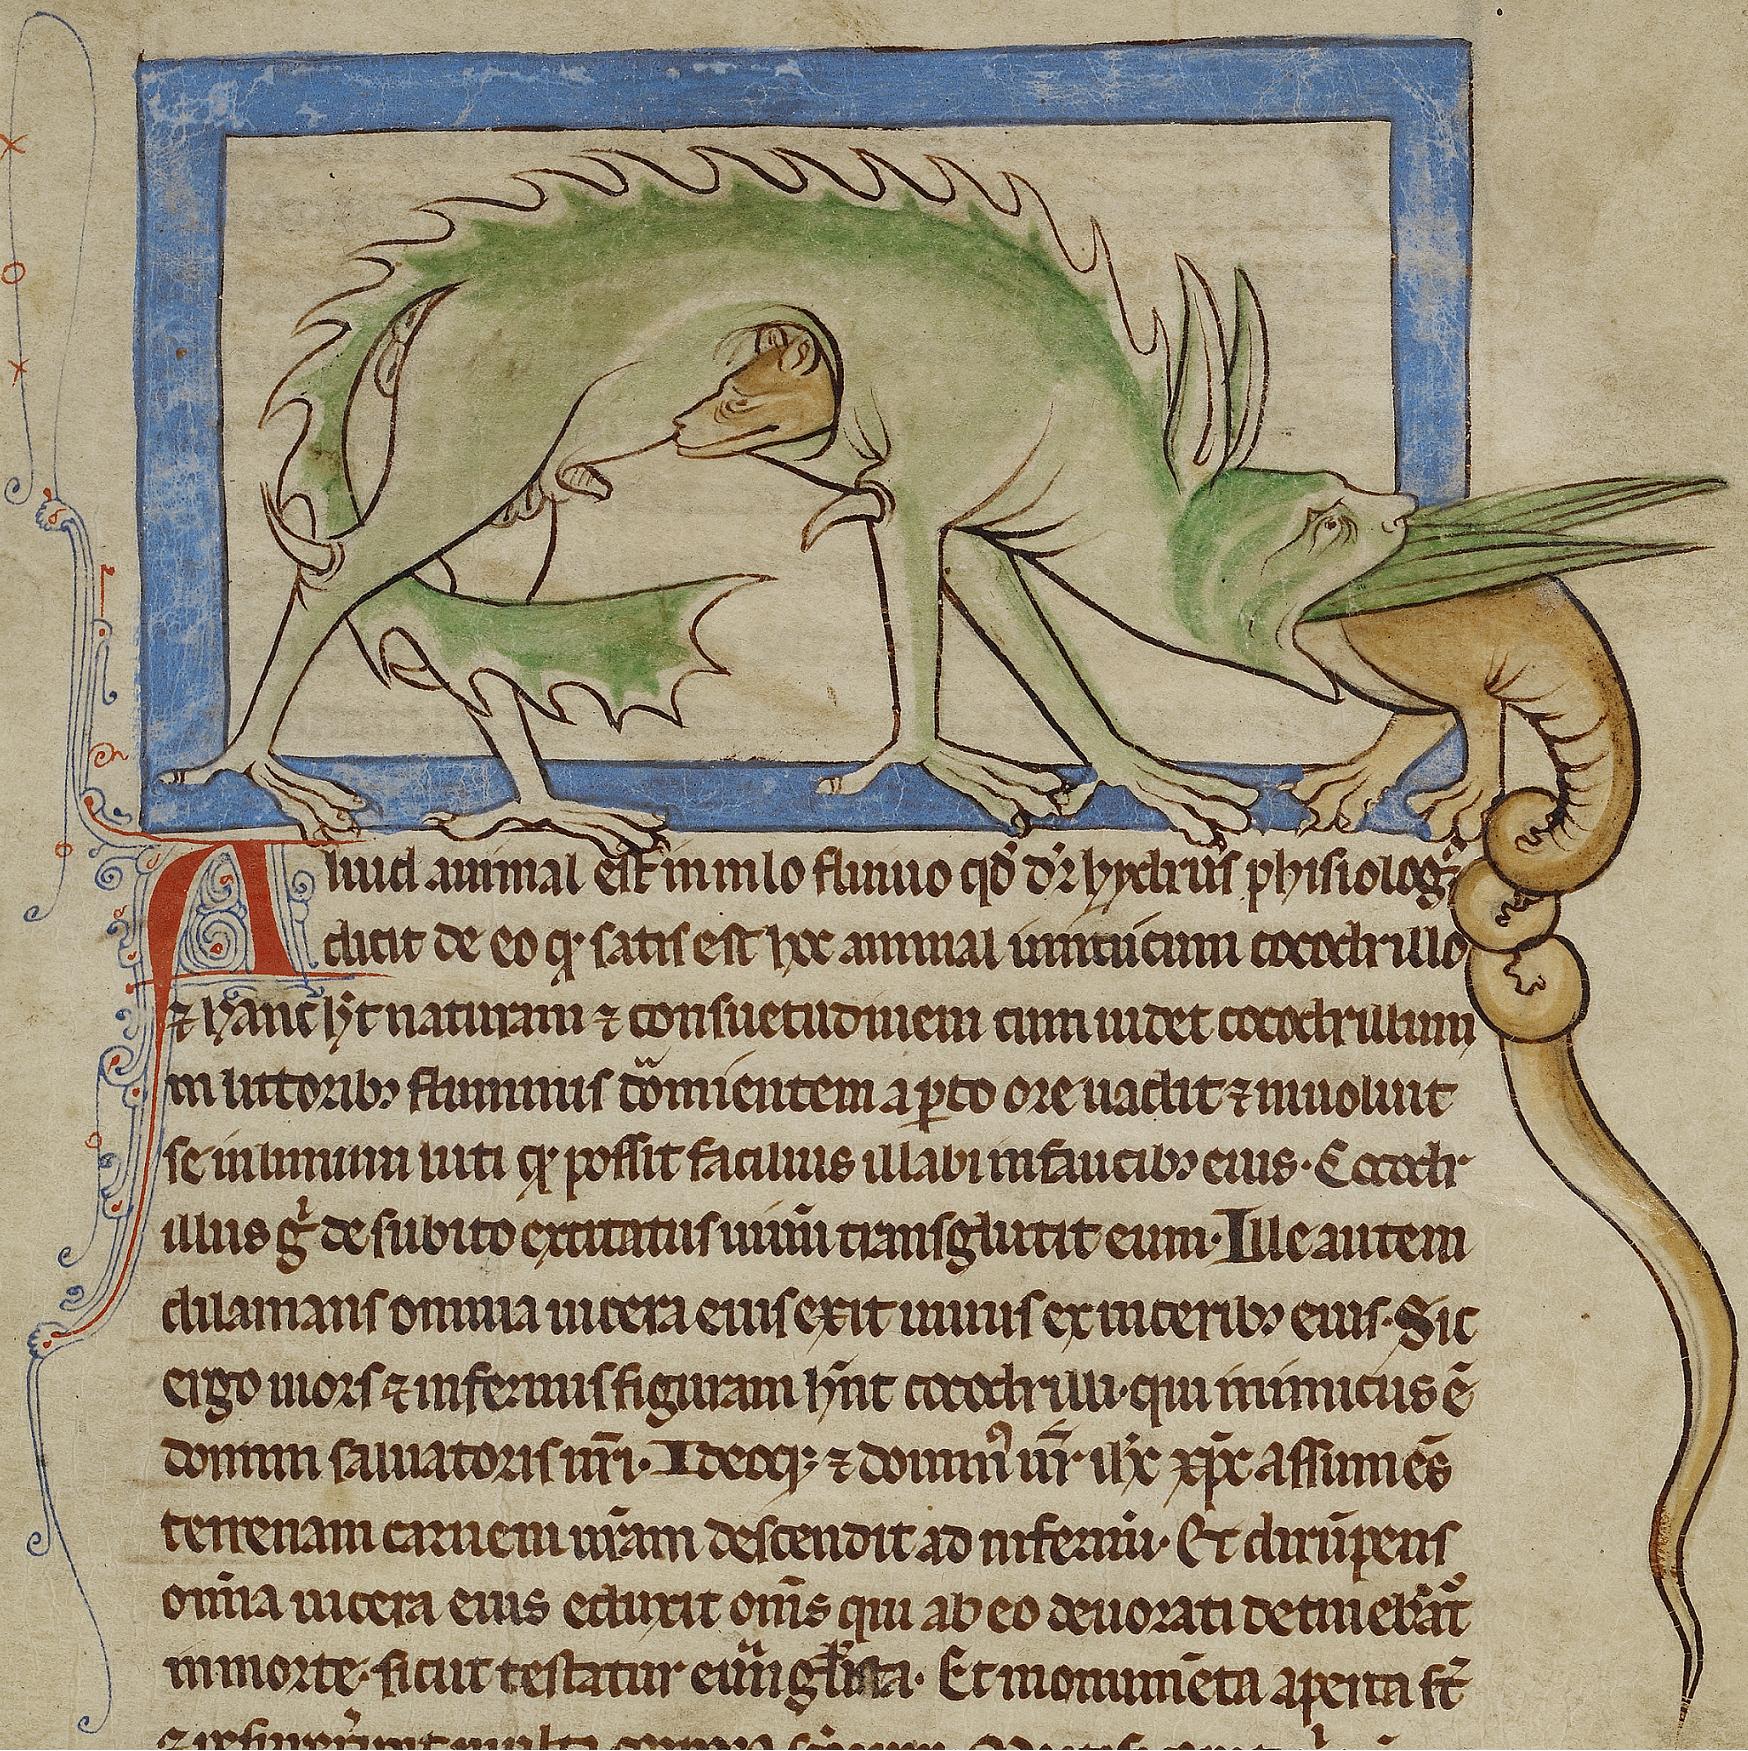 Aliud animal est in nilo fluuio qd̕ dr̕ hydrus phisiolog᷒
dicit de eo q̨ satis est hoc animal inimicum cocodrillo
⁊ hanc h̕t naturam ⁊ consuetudinem cum uidet cocodrillum
in littorib᷒ fluminis dormientem aꝑto ore uadit ⁊ inuoluit
se in limum luti q̨ possit facilius illabi in faucib᷒ eius· Cocodr
illus g̕ de subito excitatus uiuū transglutit eum· Ille autem
dilanians omnia uicera eius exit uiuus ex uicerib᷒ eius· Sic
ergo mors ⁊ infernus figuram hn̄t cocodrilli· qui inimicus ē
domini saluatoris nr̄i· Ideoq; ⁊ domin᷒ nr̄ ih̄c xp̄c assumēs
terrenam carnem nr̄am descendit ad infernū· Et dirūpens
omīa uicera eius eduxit om̄s qui ab eo deuorati detinebant᷒
in morte· sicut testatur euūglista· Et monumēta aperta st̄
⁊ resurrexerunt multa corpora